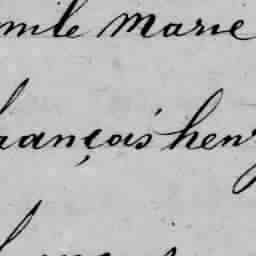 mile Marie
françois henr